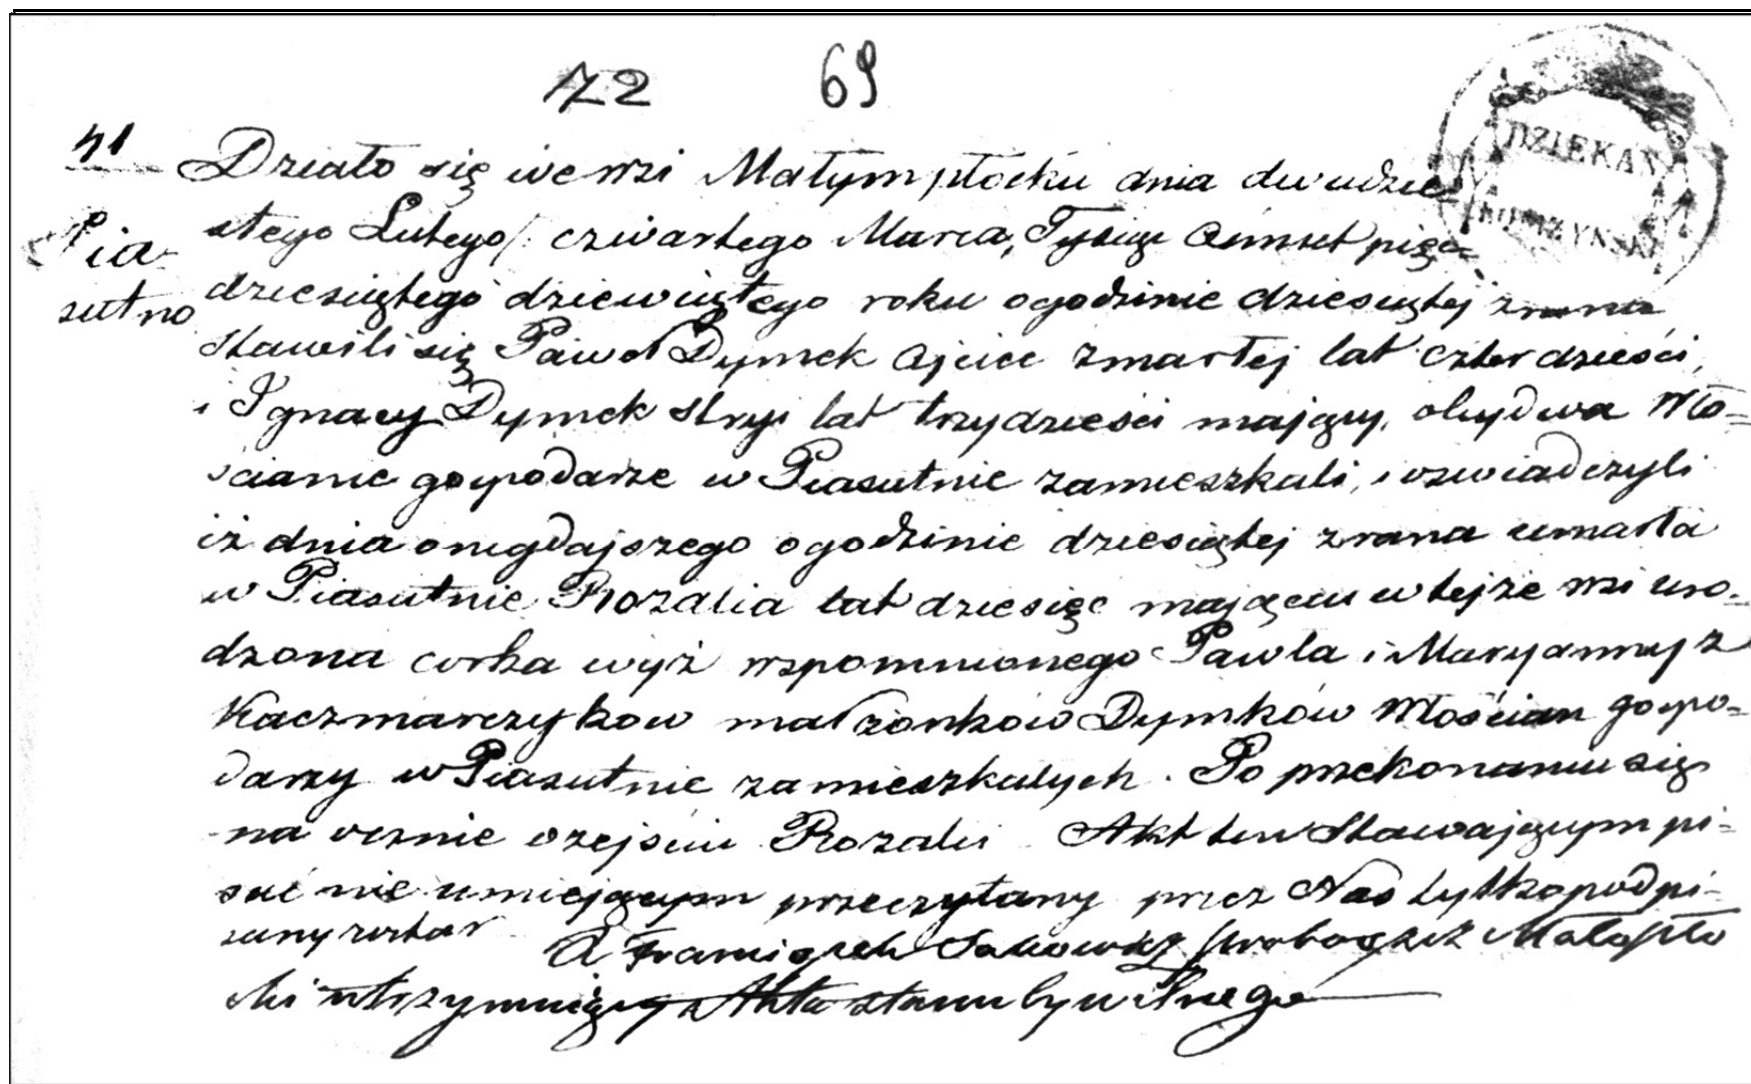 72 69
DZIEKAN
41
Działo się we wsi Małymplocku dnia dwudzie-
stego Lutego /: czwartego Marca, Tysiąc Ośmset pięć-
Pia-
sutno
dziesiątego dziewiątego roku o godzinie dziesiątej zrana
Stawili się Paweł Dymek Ojciec zmarłej lat czterdzieści,
i Ignacy Dymek Stryi lat trzydzieści mający, obydwa Wło-
ścianie gospodarze w Piasutnie zamieszkali, i oswiadczyli
iż dnia onegdajszego o godzinie dziesiątej zrana umarła
w Piasutnie Rozalia lat dziesięć mająca w tejże wsi uro-
dzona corka wyż wspomnionego Pawla i Maryanny z
Kaczmarczykow małżonków Dymków Włościan gospo-
darzy w Piasutnie zamieszkałych. Po przekonaniu się
na ocznie o zejściu Rozalii Akt ten Stawającym pi-
sać nie umiejącym przeczytany przez Nas tylko podpi-
sany został
X Franciszek Proboszcz Małopło
cki utrzymujący Akta stanu Cywilnego